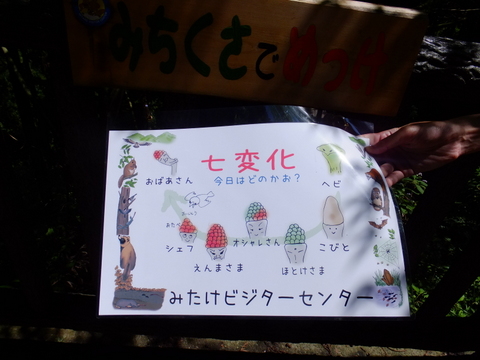 みちくさでめっけ
七変化
今日はどのかお？
おばあさん
ヘビ
シェフ
えんまさま
オシャレさん
ほとけさま
こびと
みたけビジターセンター